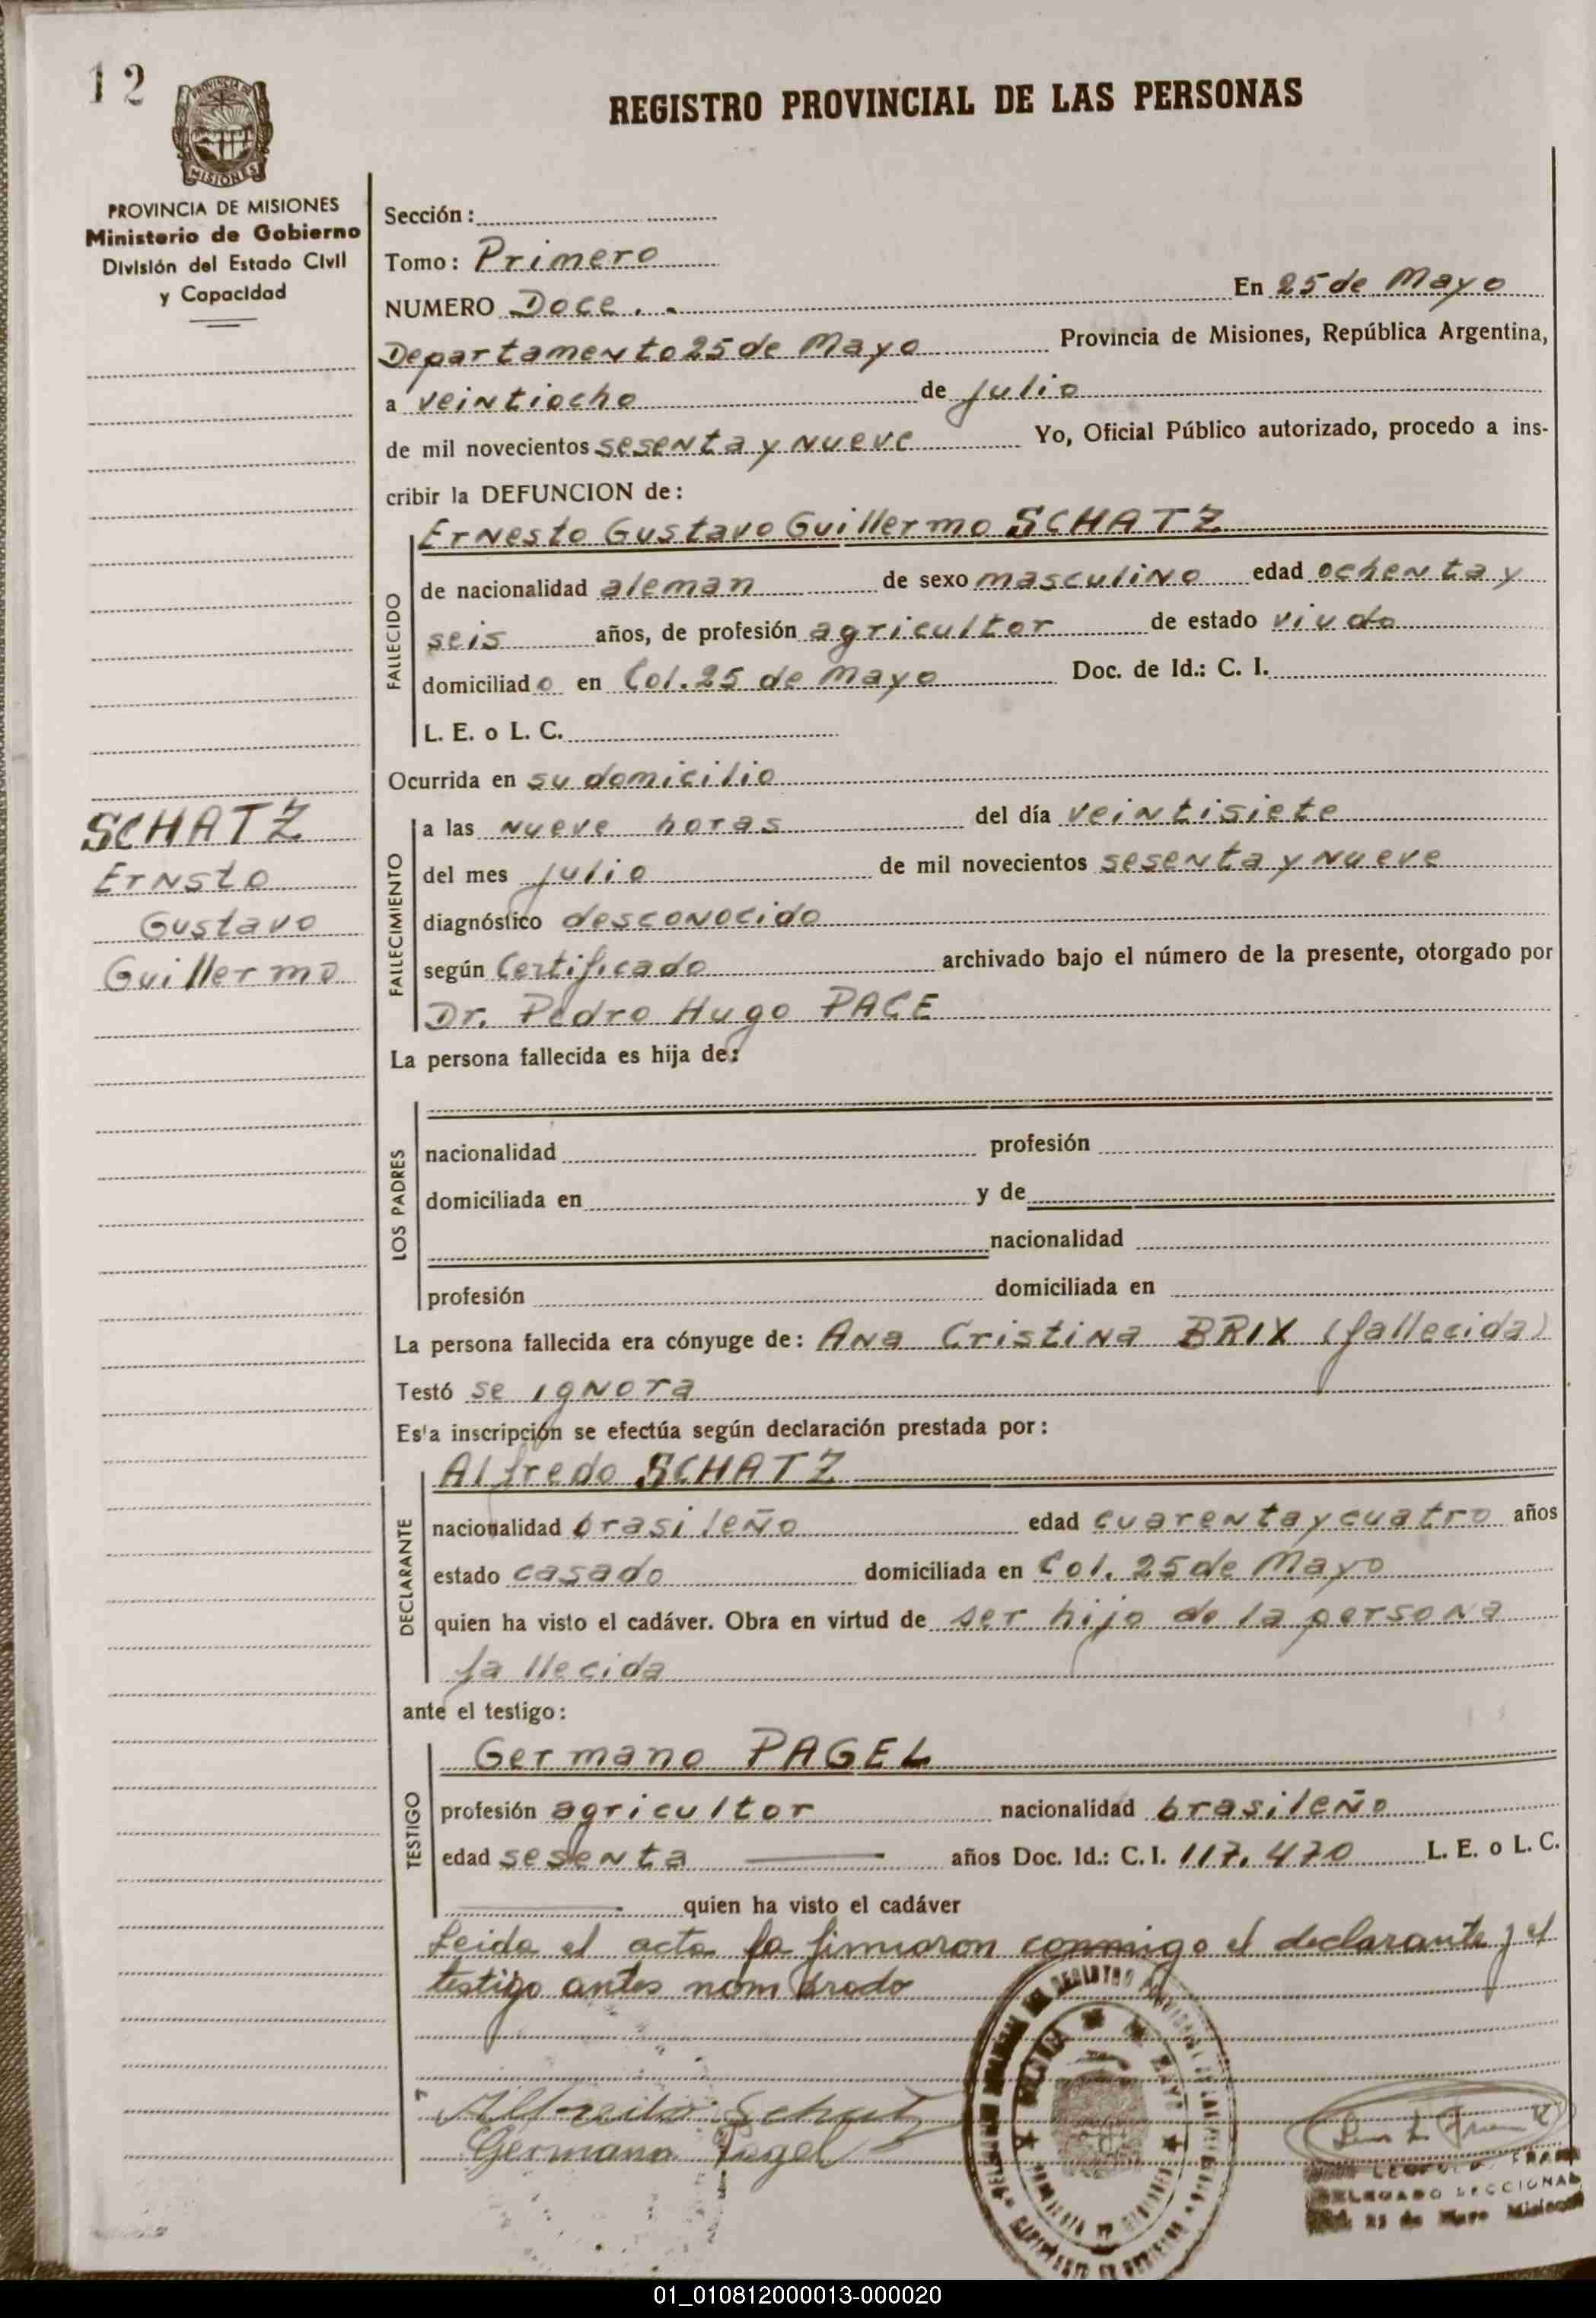 12
REGISTRO PROVINCIAL DE LAS PERSONAS
PROVINCIA DE
MISIONES
PROVINCIA DE MISIONES
Ministerio de Gobierno
División del Estado Civil
y Capacidad
Sección:
Tomo: Primero
NUMERO Doce. - En 25 de Mayo
Departamento 25 de Mayo Provincia de Misiones, República Argentina,
a veintiocho de julio
de mil novecientos sesenta y nueve Yo, Oficial Público autorizado, procedo a ins-
cribir la DEFUNCION de:
FALLECIDO
Ernesto Gustavo Guillermo SCHATZ
de nacionalidad aleman de sexo masculino edad ochenta y
seis años, de profesión agricultor de estado viudo
domiciliado en Col. 25 de Mayo Doc. de Id.: C. I.
L. E. o L. C.
Ocurrida en su domicilio
SCHATZ
Ernsto
Gustavo
Guillermo
FALLECIMIENTO
a las nueve horas del día veintisiete
del mes julio de mil novecientos sesenta y nueve
diagnóstico desconocido
según Certificado archivado bajo el número de la presente, otorgado por
Dr. Pedro Hugo PACE
La persona fallecida es hija de:
LOS PADRES
nacionalidad profesión
domiciliada en y de
nacionalidad
profesión domiciliada en
La persona fallecida era cónyuge de: Ana Cristina BRIX (fallecida)
Testó se ignora
Esta inscripción se efectúa según declaración prestada por:
DECLARANTE
Alfredo SCHATZ
nacionalidad brasileño edad cuarenta y cuatro años
estado casado domiciliada en Col. 25 de Mayo
quien ha visto el cadáver. Obra en virtud de ser hijo de la persona
fallecida
ante el testigo:
TESTIGO
Germano PAGEL
profesión agricultor nacionalidad brasileño
edad sesenta años Doc. Id.: C. I. 117.470 L. E. o L. C.
quien ha visto el cadáver
Leida el acta la firmaron conmigo el declarante y el
testigo antes nombrado
Alfredo Schatz
Germano Pagel
DELEGADO SECCIONAL
25 de Mayo Misiones
01_010812000013-000020